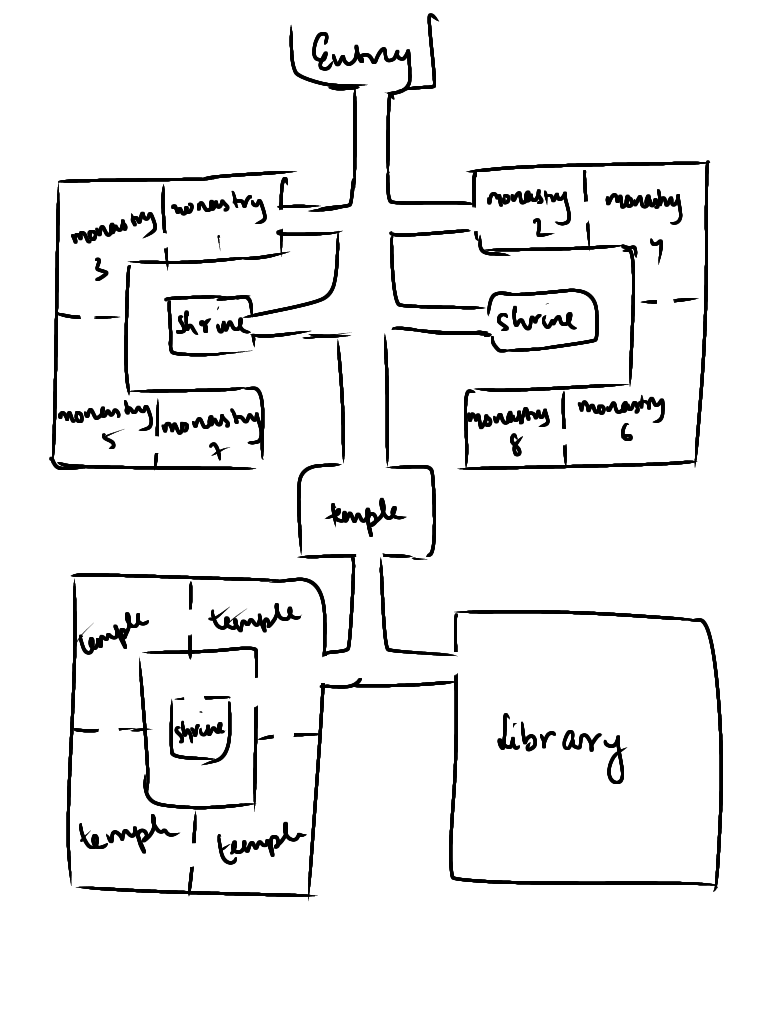 Entry
monastry
3
monastry
1
monastry
2
monastry
4
shrine
shrine
monastry
5
monastry
7
monastry
8
monastry
6
temple
temple
temple
shrine
temple
temple
Library